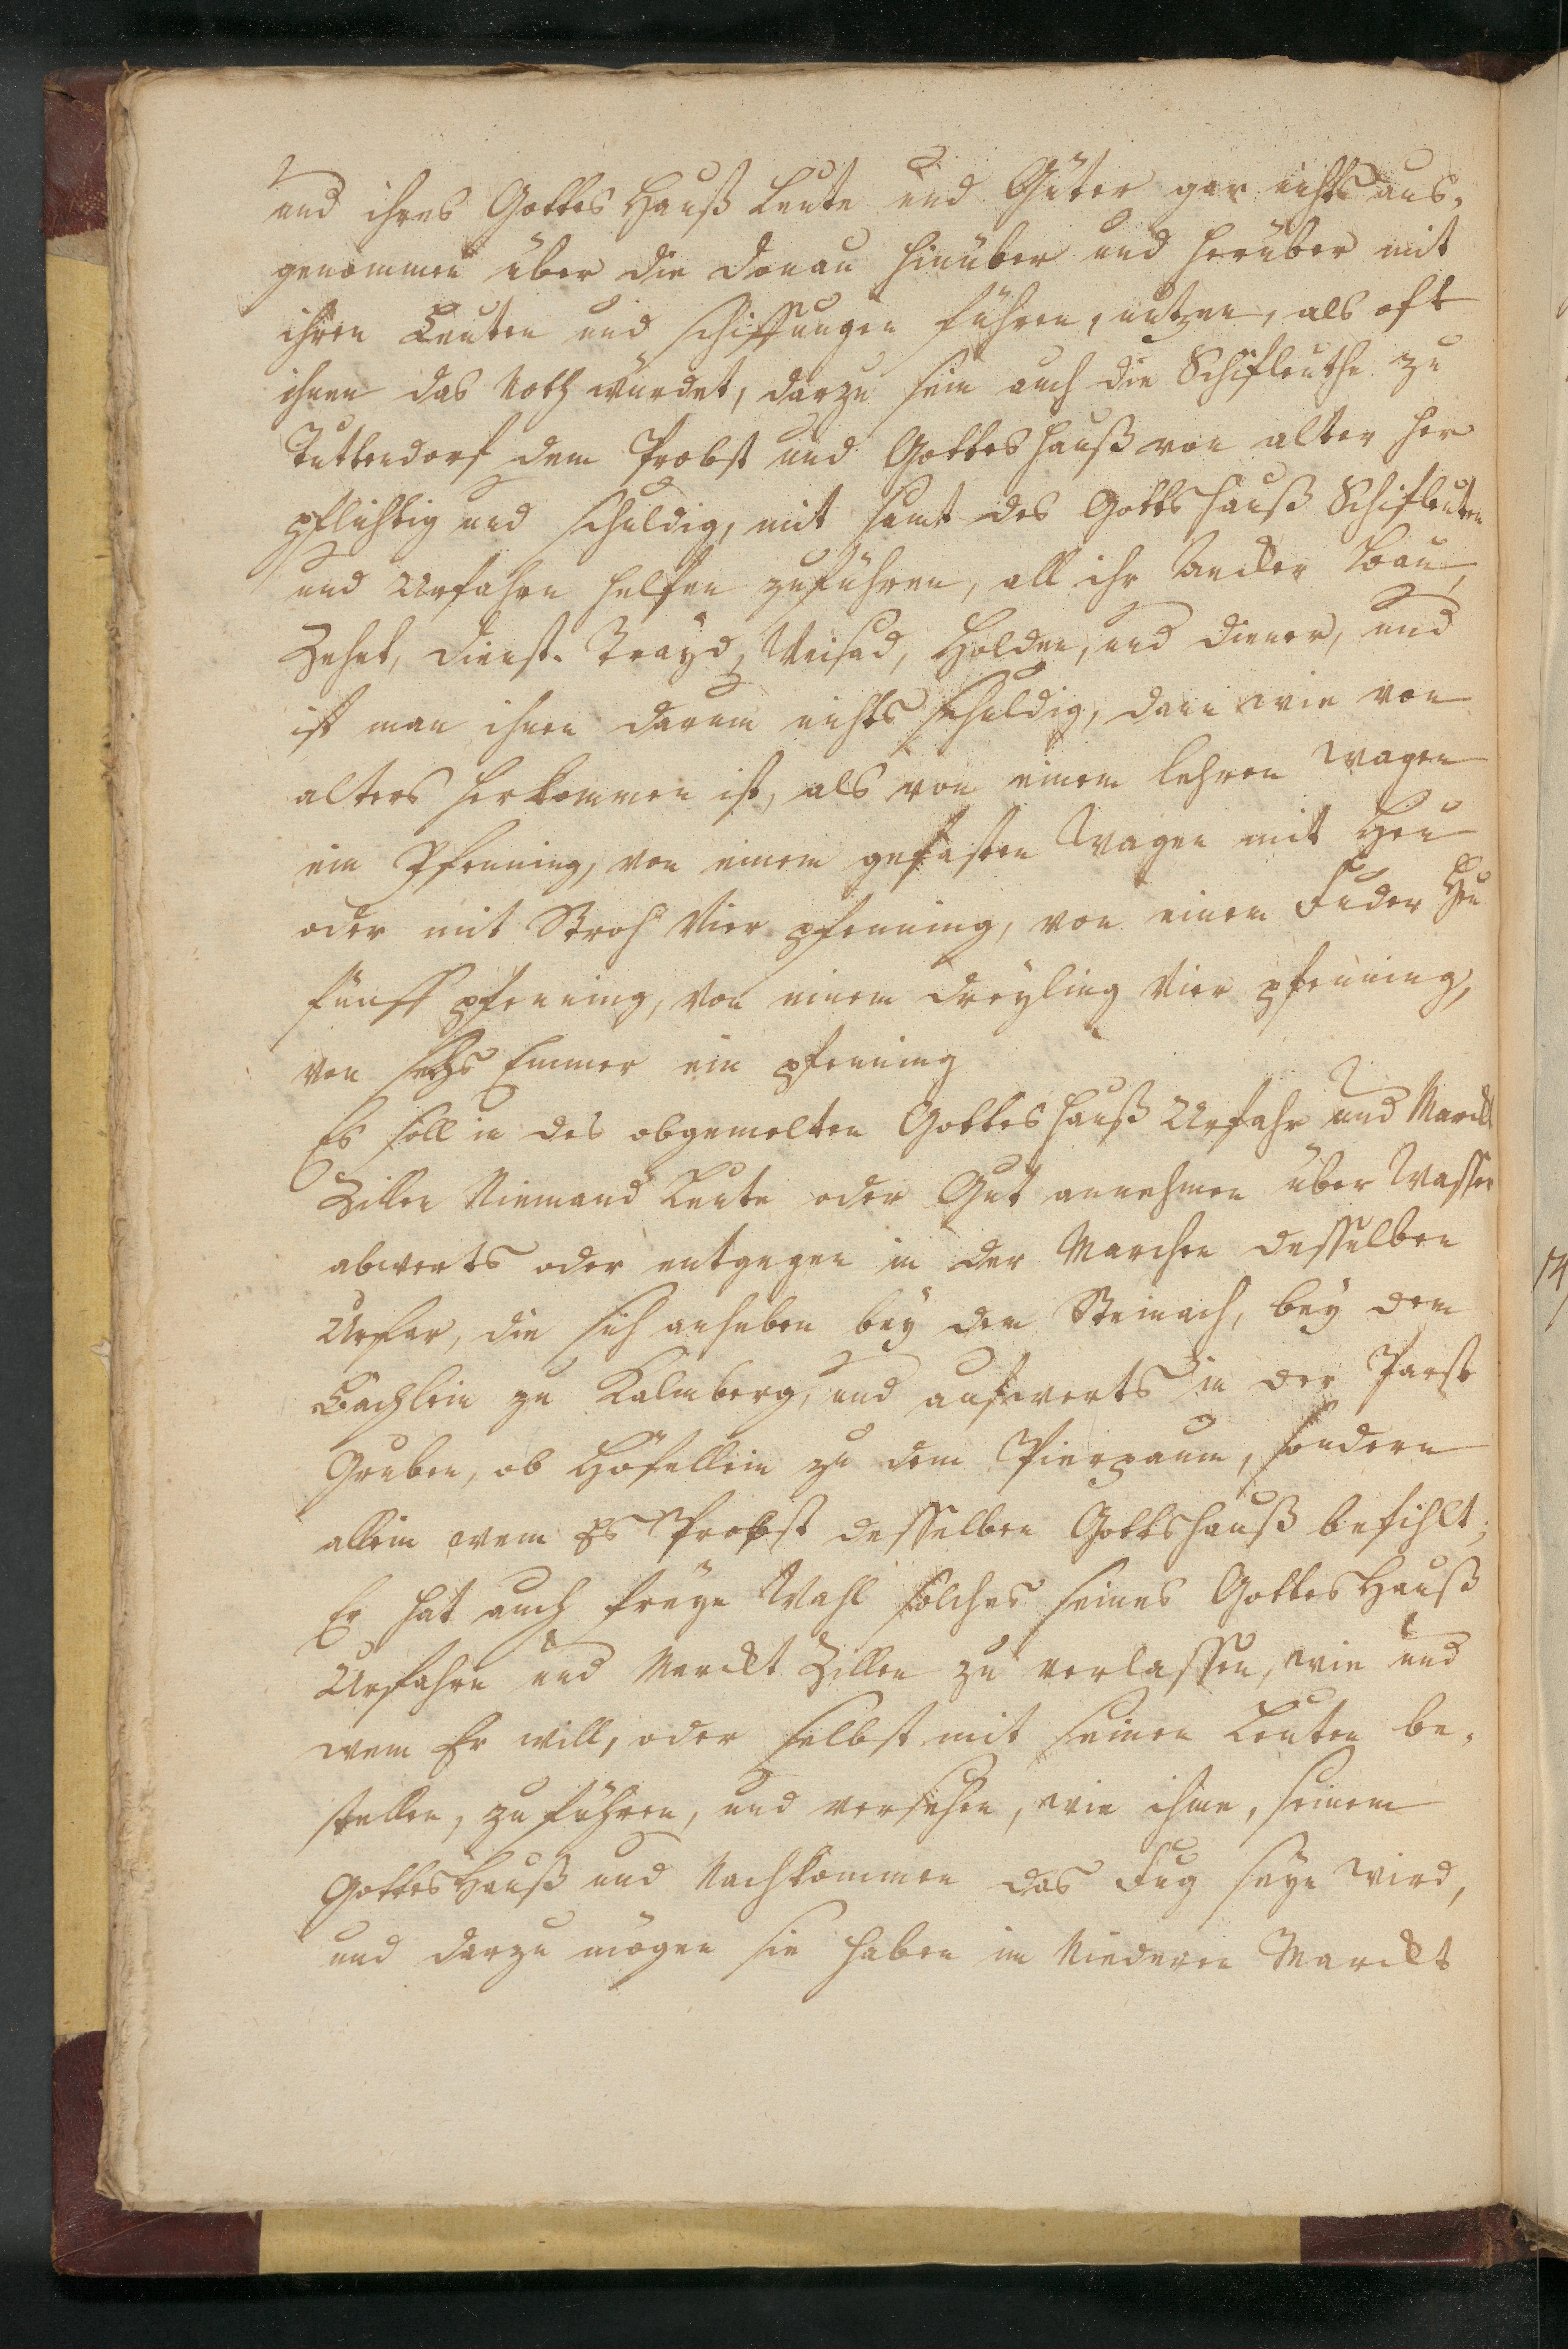 und ihres Gottes Hauß Leute und Güter gar nichts aus-
genommen über die Donau hinüber und herüber mit
ihren Leuten und schiffungen führen, nutzen, als oft
ihnen das Noth würdet, darzu sein auch die Schifleuthe zu
Tuttendorf dem Probst und Gotteshauß von alter her
pflichtig und schuldig, mit samt des Gottshauß Schifleuten
und Urfahrn helfen zuführen, all ihr Bau,
Zehet, dienst-Trayd, Holden, und diener, und
ist man ihnen darum nichts schuldig, dann wie von
alters herkommen ist, als von einem lehren wagen
ein Pfenning, von einem gefasten Wagen mit Heu
oder mit Stroh Vier pfenning, von einem Fuder Heu
fünff pfenning, von einem dreyling Vier pfenning,
von sechs Emmer ein pfenning
Es soll in des obgemelten Gotteshauß Urfahr und Marckt
Zillen Niemand Leute oder Gut annehmen über Wasser
abwerts oder entgegen in der Marchen desselben
Urfar, die sich anheben bey den Steinach, bey dem
Bächlein zu Kalmberg, und aufwerts in der
Gruben, ob Höfellein zu dem Pierpaum, sondern
allein wem es Probst desselben Gottshauß befihlt;
Er hat auch freye Wahl solches seines Gottes Hauß
Urfahrn und Marckt Zillen zu verlassen, wie und
wem Er will, oder selbst mit seinen Leuten be-
stellen, zu führen, und versehen, wie ihme, seinem
Gottes Hauß und Nachkommen das Fug seyn wird,
und darzu mögen sie haben im Niederen Marckt
14